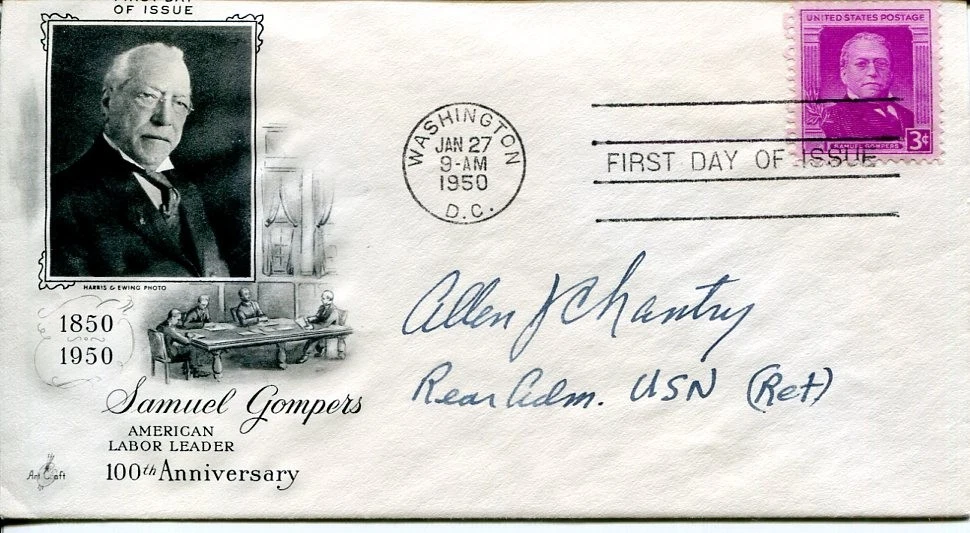 FIRST DAY
OF ISSUE
HARRIS & EWING PHOTO
1850
1950
Samuel Gompers
AMERICAN
LABOR LEADER
100th Anniversary
Art Craft
WASHINGTON
JAN 27
9-AM
1950
D.C.
UNITED STATES POSTAGE
SAMUEL GOMPERS
3¢
FIRST DAY OF ISSUE
Allen J Chantry
Rear Adm. USN (Ret)